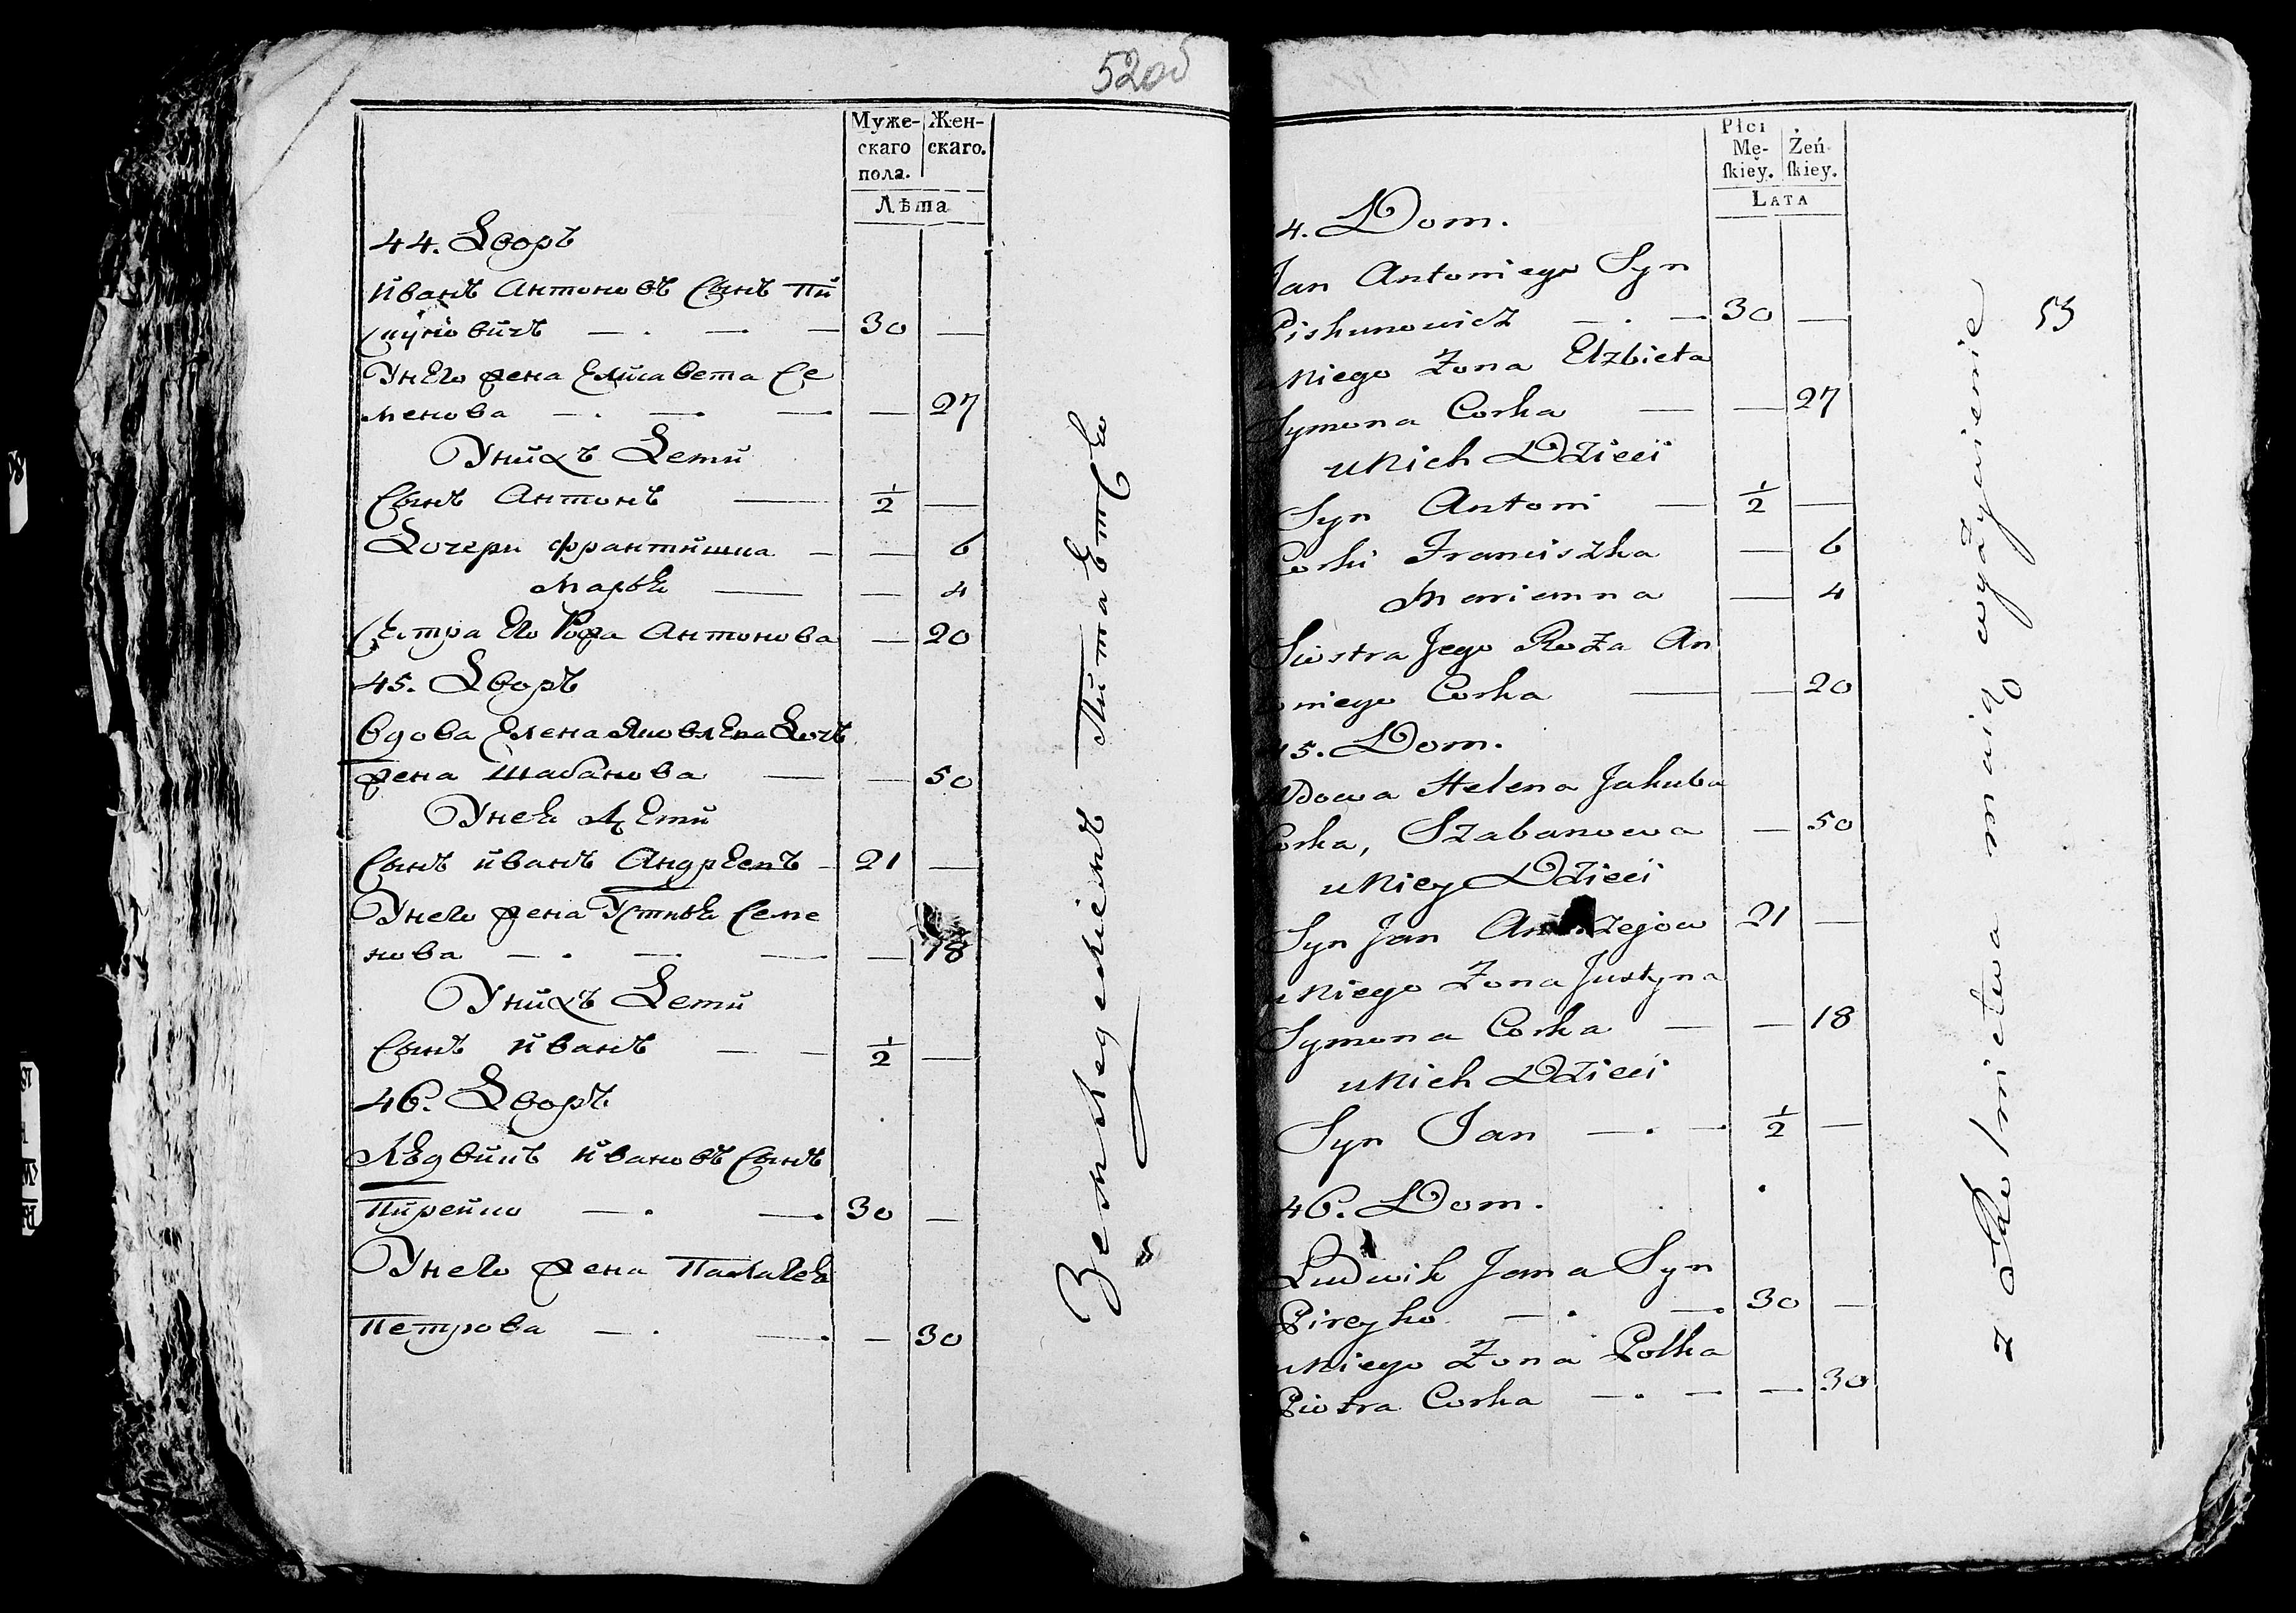 52об
Муже-
скаго
пола.
Жен-
скаго.
Лѣта
44. Дворъ
Иванъ Антоновъ Сынъ Пи
шуновичъ 30 —
Унего жена Елисавета Се
менова — 27
Унихъ Дети
Сынъ Антонъ 1/2 —
Дочери Франтишка — 6
Марья — 4
Сестра Его Рожа Антонова — 20
45. Дворъ
Вдова Елена Яковлева Дочь
жена Шабанова — 50
Унея Дети
Сынъ Иванъ Андреевъ 21 —
Унего жена Устинья Семе
нова — 18
Унихъ Дети
Сынъ Иванъ 1/2 —
46. Дворъ
Людвикъ Ивановъ Сынъ
Пирейко 30 —
Унего жена Палагея
Петрова — 30
Земледелиемъ Питаетсѧ
Płci
Mę-
ſkiey.
Żeń-
ſkiey.
LATA
53
4. Dom.
Jan Antoniego Syn
Piskunowicz 30 —
uNiego Żona Elzbieta
Symona Corka — 27
uNich Dzieci
Syn Antoni 1/2 —
Corki Franciszka — 6
Marianna — 4
Siostra Jego Roża An
oniego Corka — 20
45. Dom.
Wdowa Helena Jakuba
Corka, Szabanowa — 50
uNiey Dzieci
Syn Jan Andrzejow 21 —
uNiego Żona Justyna
Symona Corka — 18
uNich Dzieci
Syn Jan 1/2 —
46. Dom.
Ludwik Jana Syn
Pireyko 30 —
uNiego Żona Połka
Piotra Corka — 30
z Rolnictwa maią wyżywienie